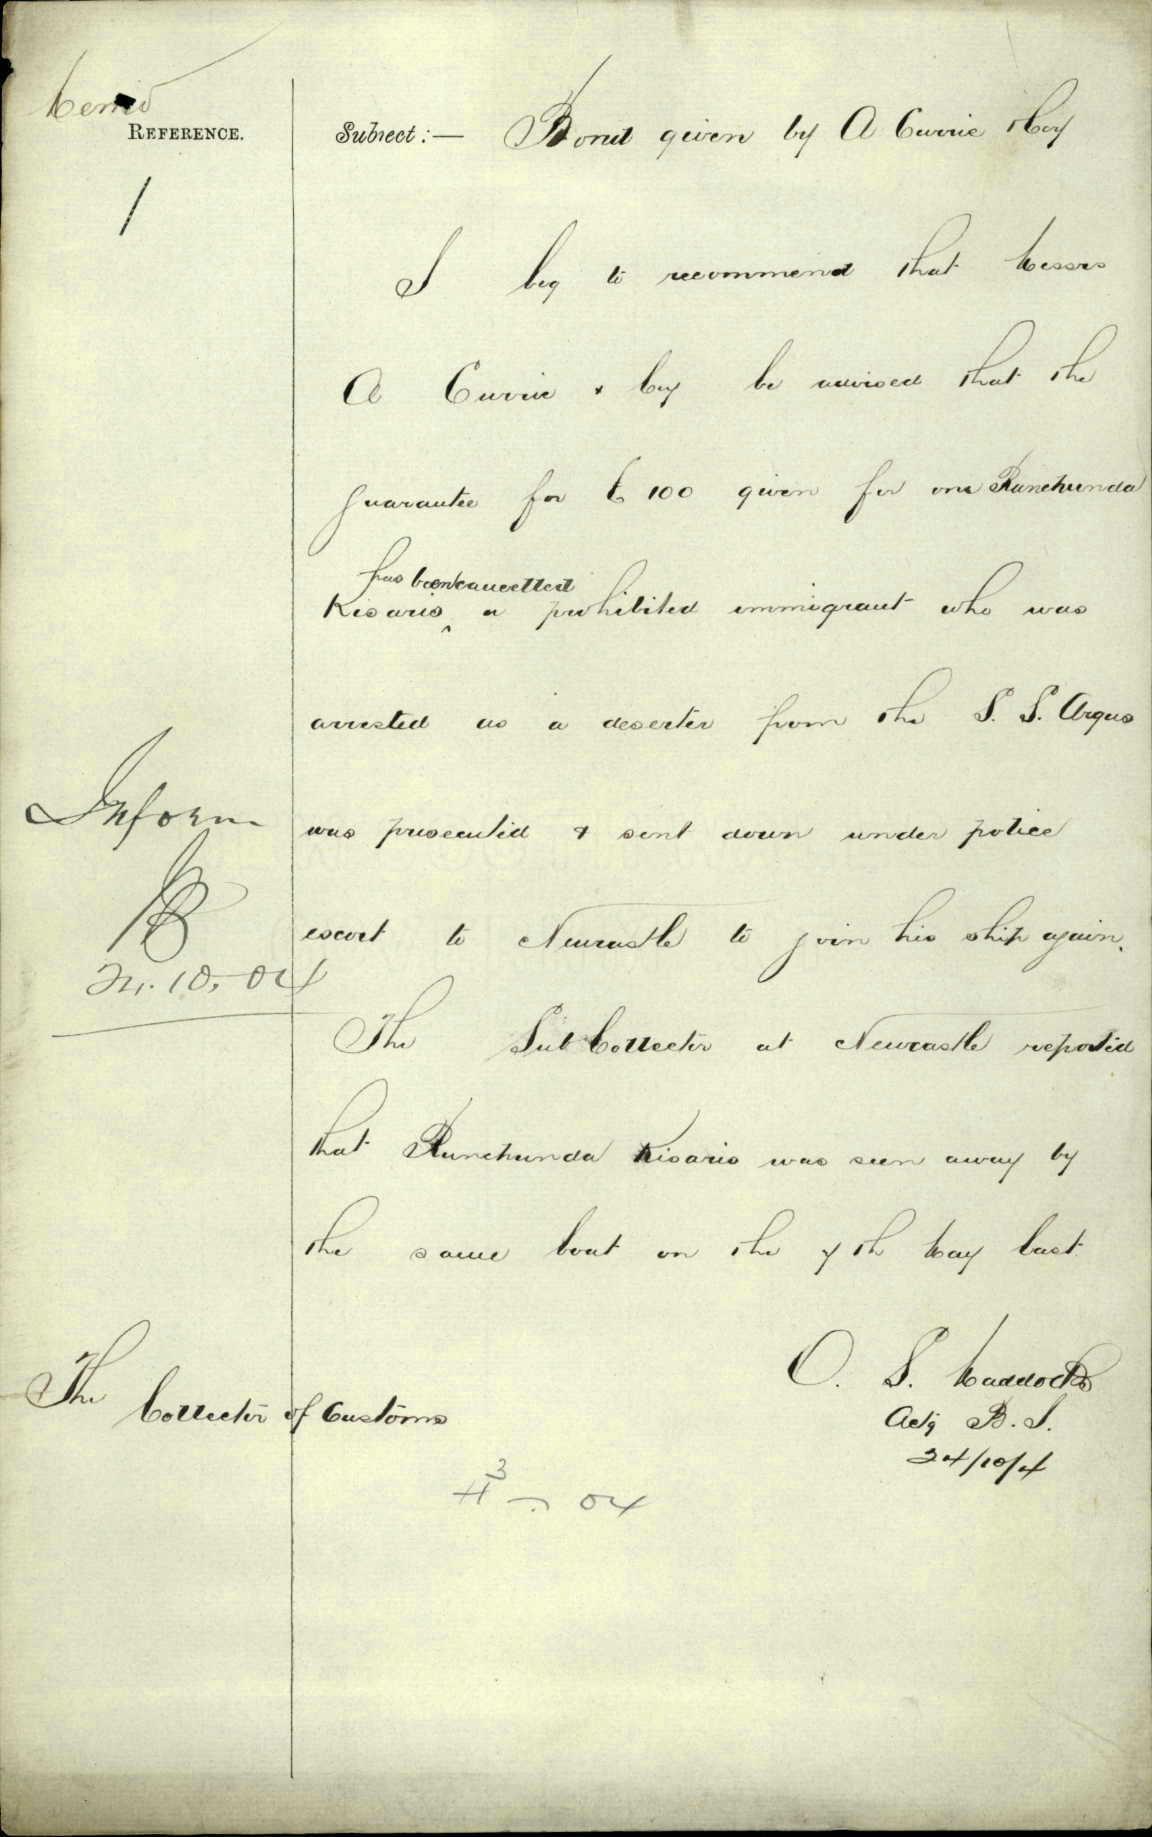 Memo
REFERENCE.
1
Subject:— Bond given by A Currie & Coy
I beg to recommend that Messrs
A Currie & Coy be advised that the
guarantee for £100 given for one Runchunda
has been cancelled
Kisario ^ a prohibited immigrant who was
arrested as a deserter from the S. S. Argus
was prosecuted & sent down under police
escort to Newcastle to join his ship again.
The Sub Collector at Newcastle reported
that Runchunda Kisario was seen away by
the same boat on the 7th May last.
O. S. Maddocks
Actg B. I.
24/10/4
The Collector of Customs
Inform
24.10.04